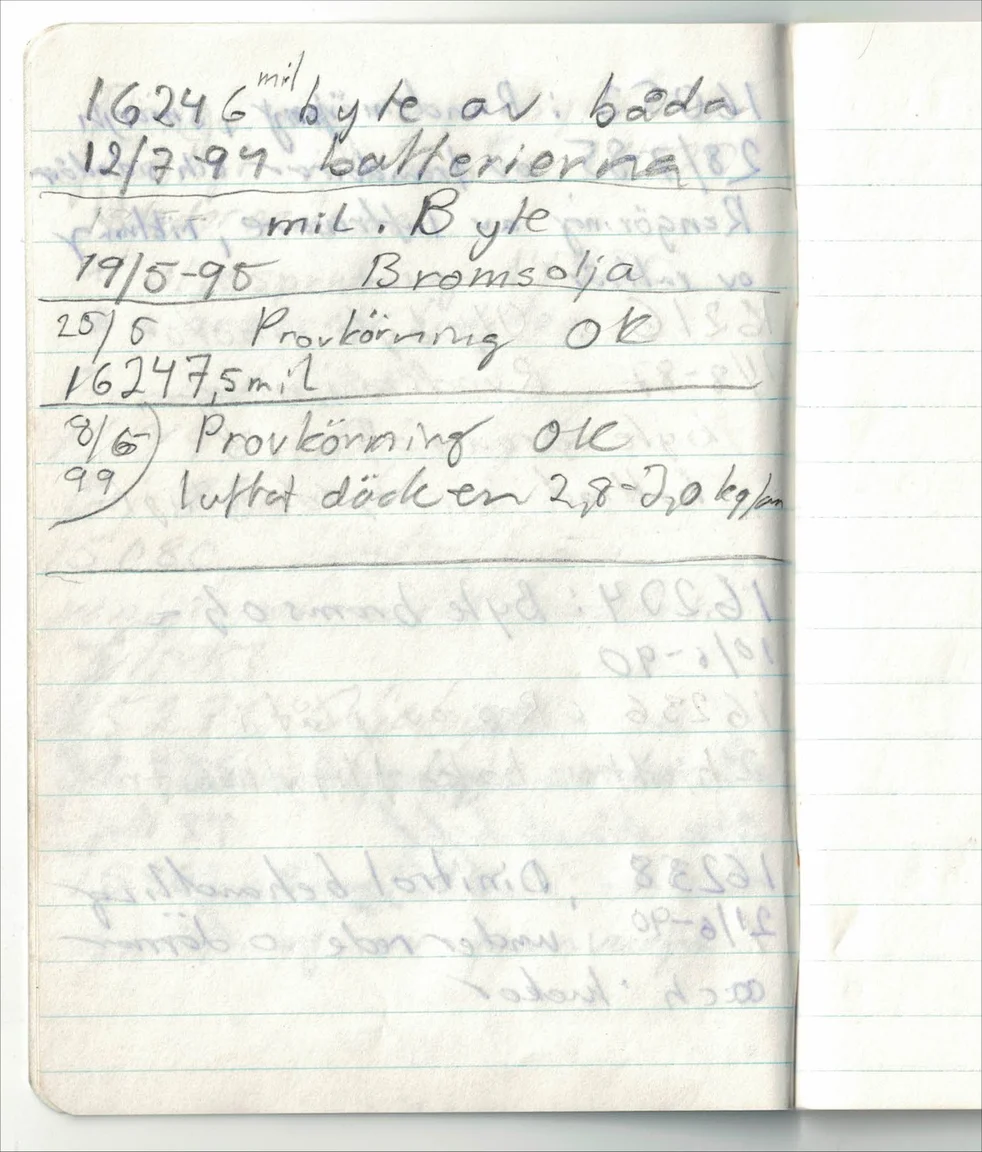 16246 mil byte av båda
12/7-94 batterierna
mil. Byte
19/5-95 Bromsolja
25/5 Provkörning OK
16247,5 mil
8/6 Provkörning OK
99 luftat däcken 2,8-3,0 kg/cm